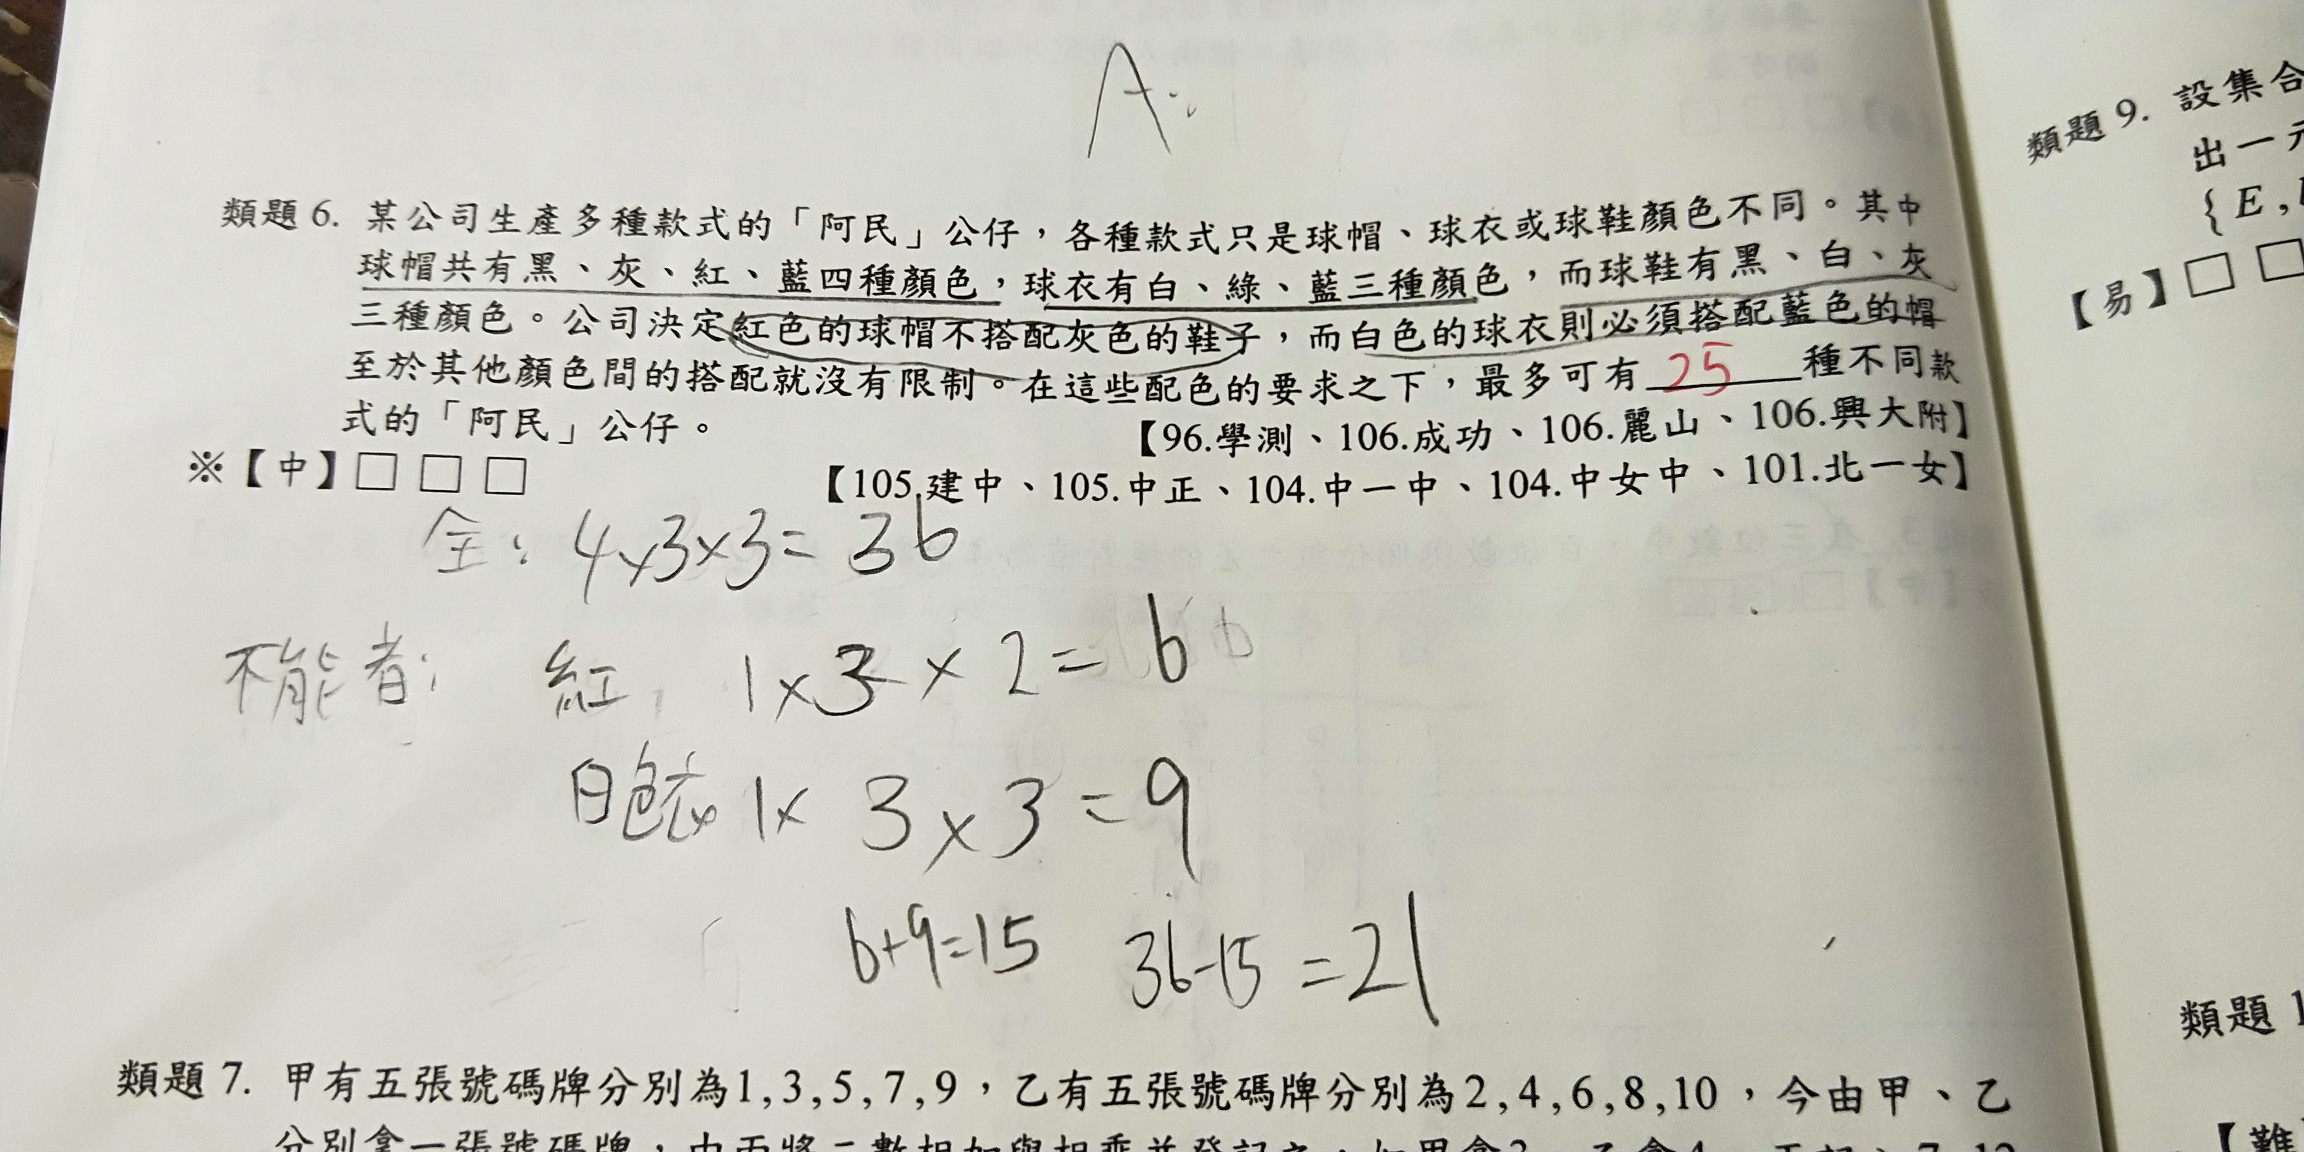 A:
類題6. 某公司生產多種款式的「阿民」公仔，各種款式只是球帽、球衣或球鞋顏色不同。其中
球帽共有黑、灰、紅、藍四種顏色，球衣有白、綠、藍三種顏色，而球鞋有黑、白、灰
三種顏色。公司決定紅色的球帽不搭配灰色的鞋子，而白色的球衣則必須搭配藍色的帽
至於其他顏色間的搭配就沒有限制。在這些配色的要求之下，最多可有 25 種不同款
式的「阿民」公仔。
【96.學測、106.成功、106.麗山、106.興大附】
※【中】□ □ □
【105.建中、105.中正、104.中一中、104.中女中、101.北一女】
全: 4×3×3=36
不能者: 紅 1×3×2=6
白色衣 1×3×3=9
6+9=15 36-15=21
類題7. 甲有五張號碼牌分別為1,3,5,7,9，乙有五張號碼牌分別為2,4,6,8,10，今由甲、乙
分別拿一張號碼牌，
類題9. 設集合
出一元
{E,
【易】□ □
類題1
【難